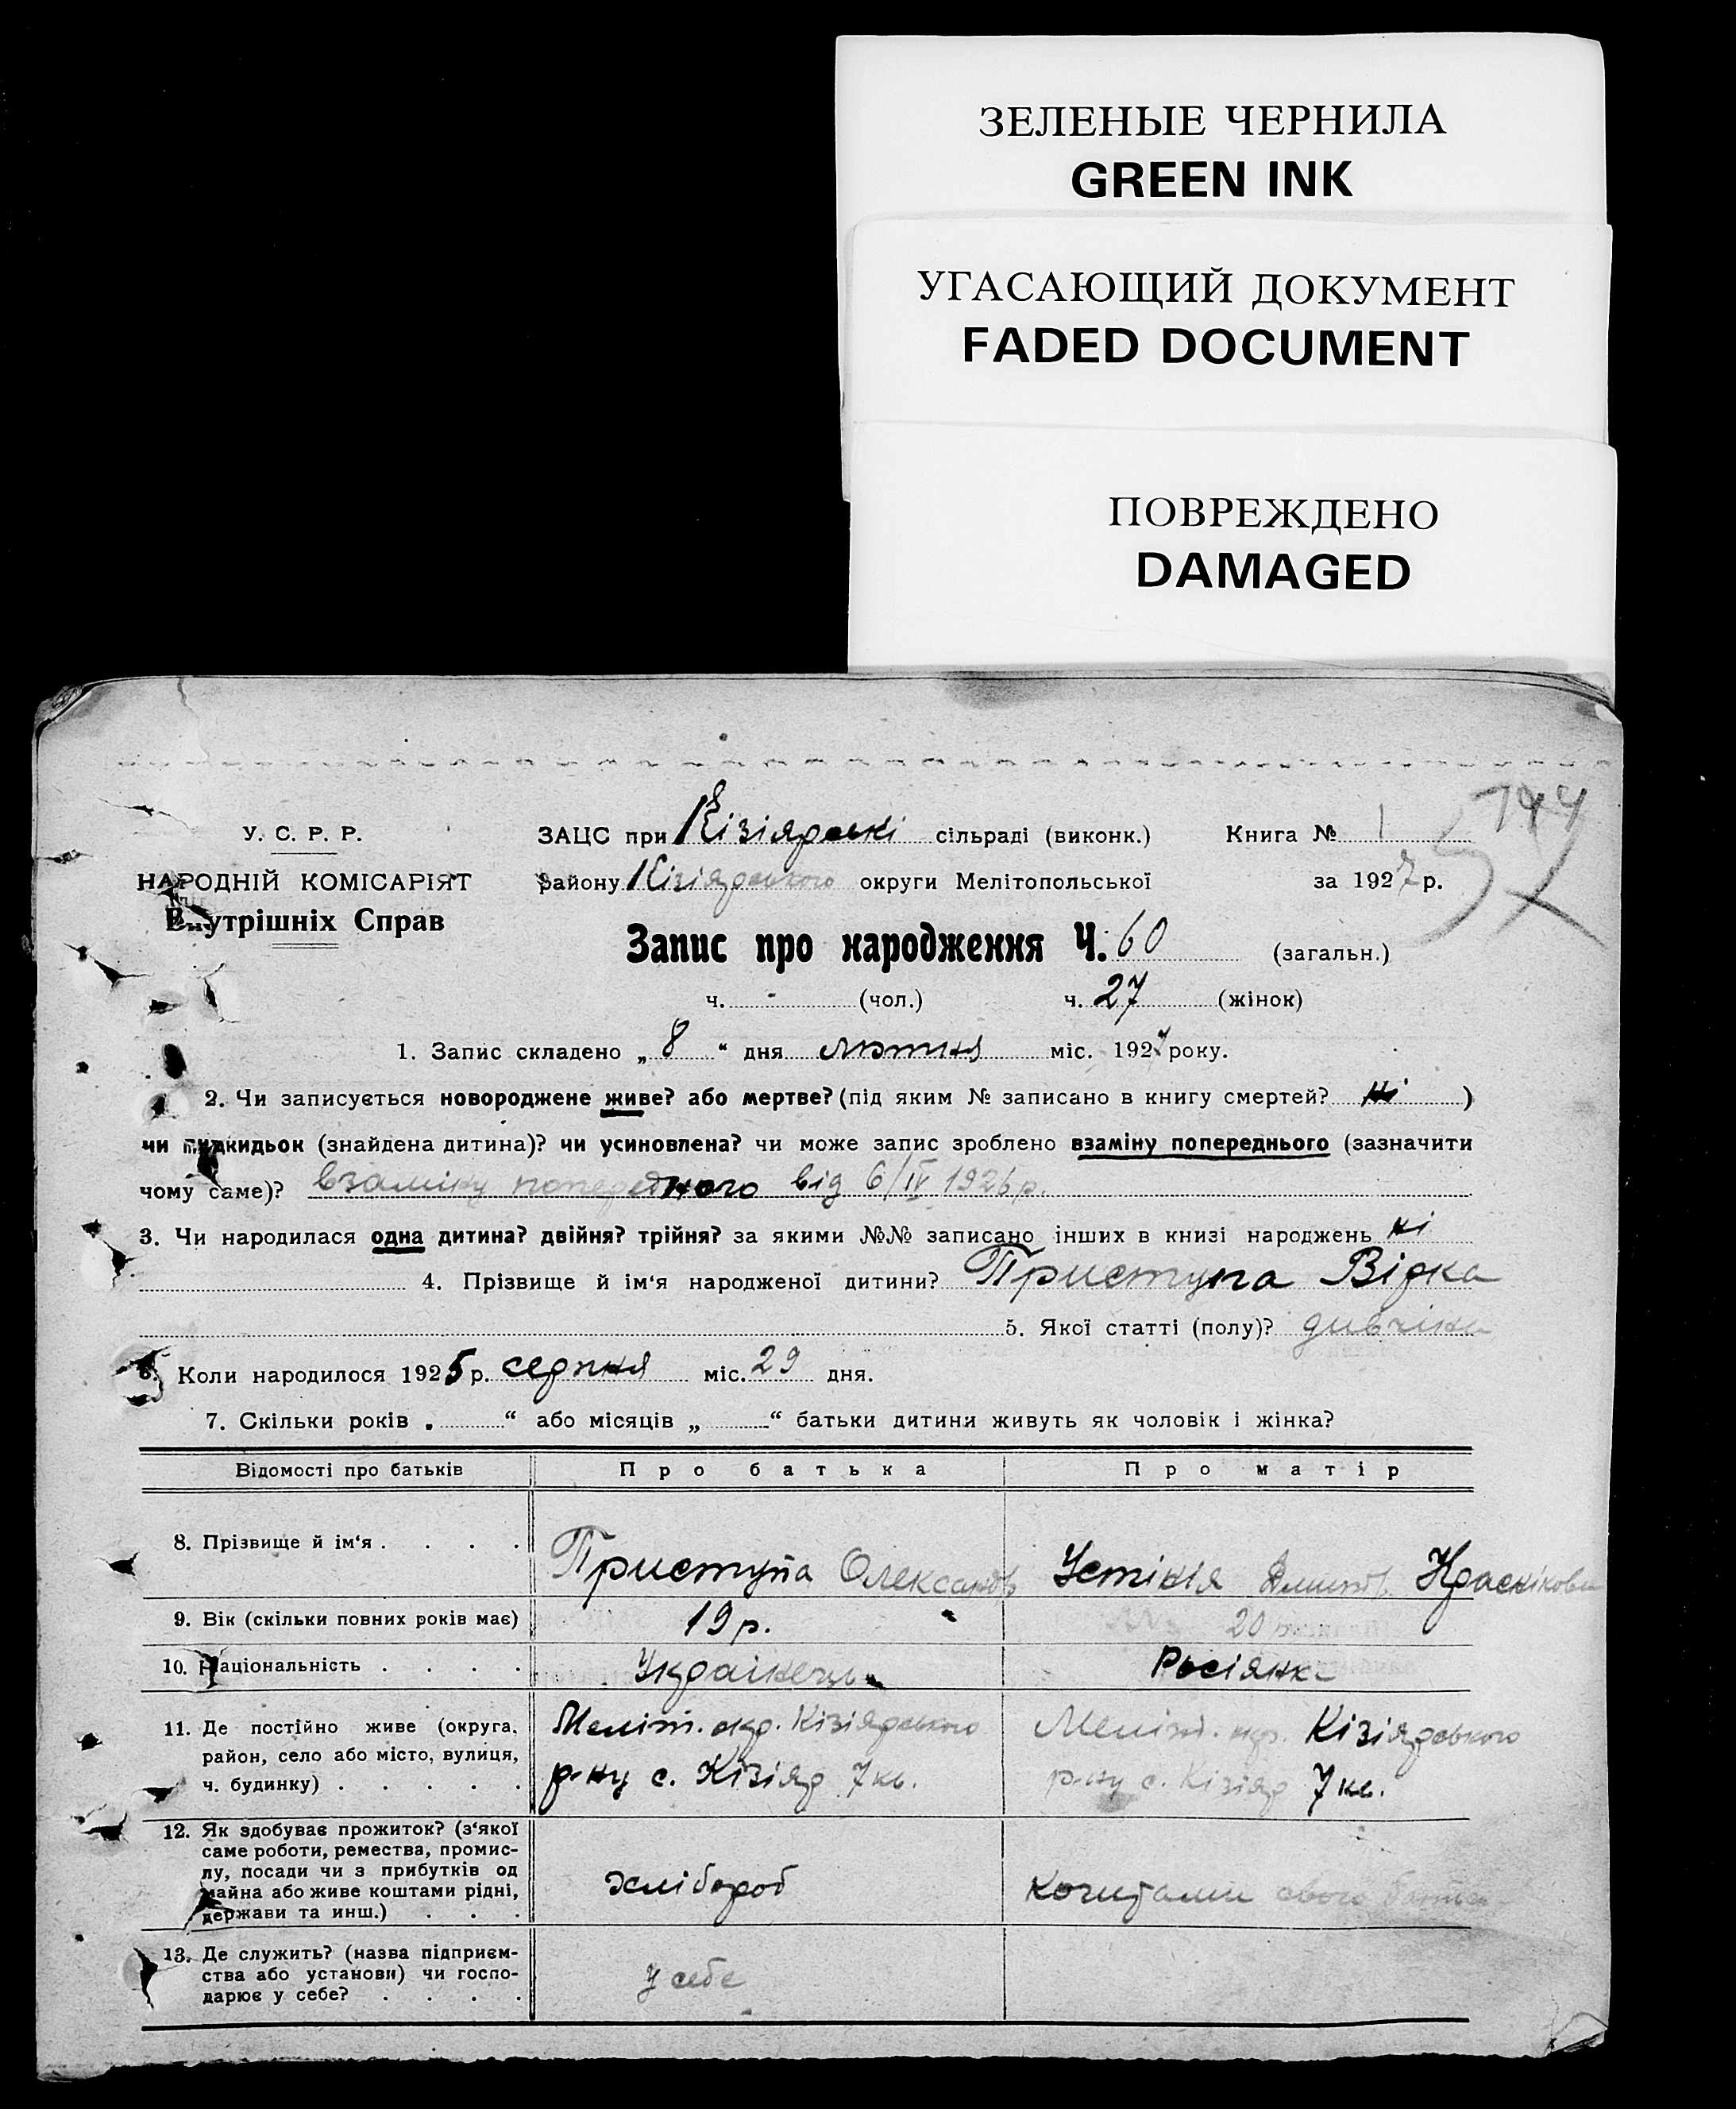 ЗЕЛЕНЫЕ ЧЕРНИЛА
GREEN INK
УГАСАЮЩИЙ ДОКУМЕНТ
FADED DOCUMENT
ПОВРЕЖДЕНО
DAMAGED
У. С. Р. Р.
НАРОДНІЙ КОМІСАРІЯТ
Внутрішніх Справ
ЗАЦС при Кізіярські сільраді (виконк.) Книга № 1
району Кізіярського округи Мелітопольської за 1927 р.
Запис про народження Ч. 60 (загальн.)
ч. - (чол.) ч. 27 (жінок)
1. Запис складено „ 8 “ дня лютня міс. 1927 року.
2. Чи записується новороджене живе? або мертве? (під яким № записано в книгу смертей? ні )
чи підкидьок (знайдена дитина)? чи усиновлена? чи може запис зроблено взаміну попереднього (зазначити
чому саме)? взаміну попередного від 6/IV 1926 р.
3. Чи народилася одна дитина? двійня? трійня? за якими №№ записано інших в книзі народжень ні
4. Прізвище й ім‘я народженої дитини? Приступа Вірка
5. Якої статті (полу)? дивчина
6. Коли народилося 1925 р. серпня міс. 29 дня.
7. Скільки років „ “ або місяців „ “ батьки дитини живуть як чоловік і жінка?
Відомості про батьків Про батька Про матір
8. Прізвище й ім‘я . . . . Приступа Олександр Устінія
9. Вік (скільки повних років має) 19 р. 20 р.
10. Національність . . . . Українець Росіянка
11. Де постійно живе (округа, Меліт. окр. Кізіярського Меліт. окр. Кізіярського
район, село або місто, вулиця, р-ну с. Кізіяр 7 кв. р-ну с. Кізіяр 7 кв.
ч. будинку) . . . . .
12. Як здобуває прожиток? (з‘якої
саме роботи, ремества, промис-
лу, посади чи з прибутків од
майна або живе коштами рідні, хлібороб коштами свого батька
держави та инш.) . . .
13. Де служить? (назва підприєм-
ства або установи) чи госпо- у себе
дарює у себе? . . . .